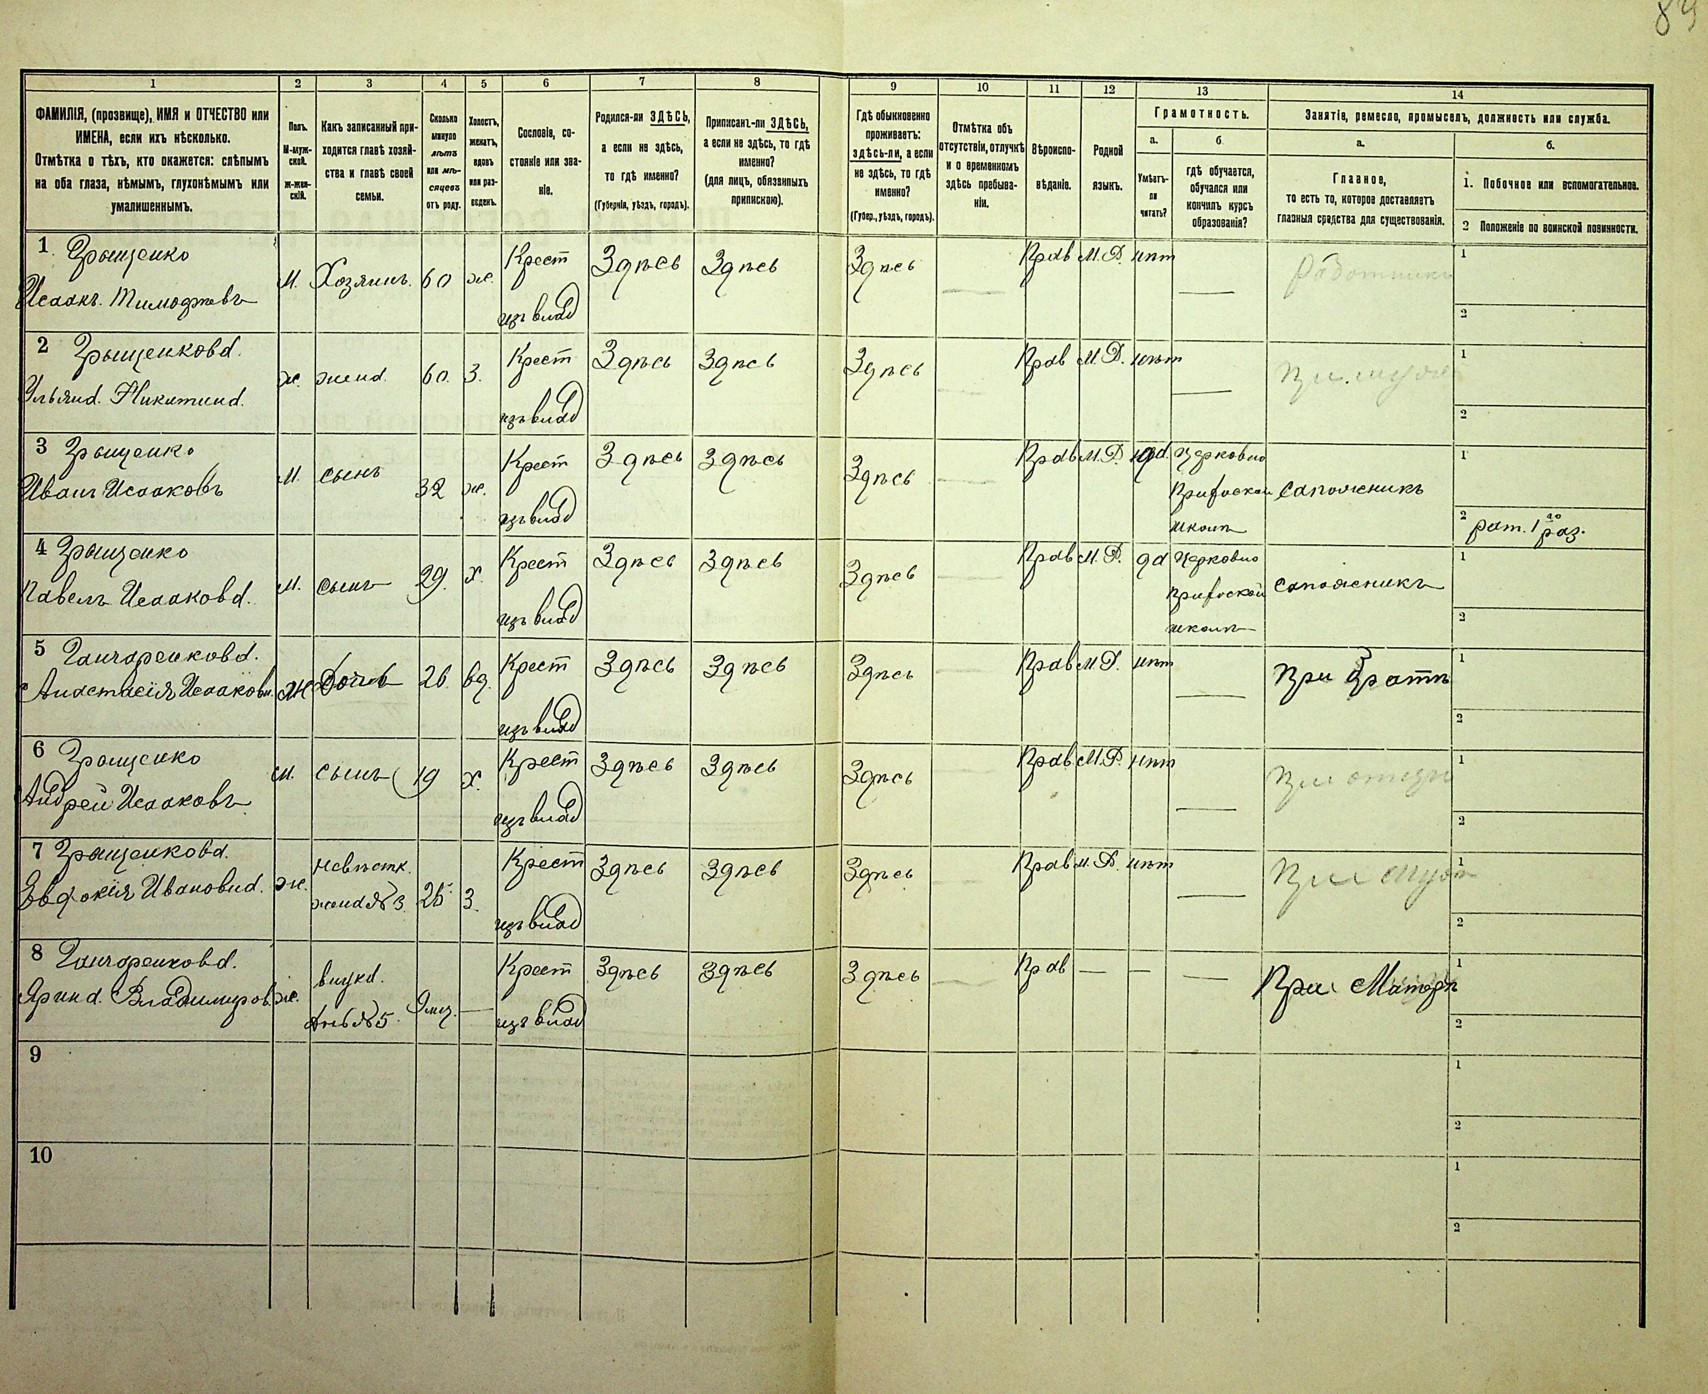 84
1 2 3 4 5 6 7 8 9 10 11 12 13 14
ФАМИЛІЯ, (прозвище), ИМЯ и ОТЧЕСТВО или
ИМЕНА, если ихъ нѣсколько.
Отмѣтка о тѣхъ, кто окажется: слѣпымъ
на оба глаза, нѣмымъ, глухонѣмымъ или
умалишеннымъ.
Полъ.
М-муж-
ской.
ж-жен-
скій.
Какъ записанный при-
ходится главѣ хозяй-
ства и главѣ своей
семьи.
Сколько
минуло
лѣтъ
или мѣ-
сяцевъ
отъ роду.
Холостъ,
женатъ,
вдовъ
или раз-
веденъ.
Сословіе, со-
стояніе или зва-
ніе.
Родился-ли ЗДѢСЬ,
а если не здѣсь,
то гдѣ именно?
(Губернія, уѣздъ, городъ).
Приписанъ-ли ЗДѢСЬ,
а если не здѣсь, то гдѣ
именно?
(для лицъ, обязанныхъ
припискою).
Гдѣ обыкновенно
проживаетъ:
здѣсь-ли, а если
не здѣсь, то гдѣ
именно?
(Губер., уѣздъ, городъ).
Отмѣтка объ
отсутствіи, отлучкѣ
и о временномъ
здѣсь пребыва-
ніи.
Вѣроиспо-
вѣданіе.
Родной
языкъ.
Грамотность.
а.
Умѣетъ-
ли
читать?
б
гдѣ обучается,
обучался или
кончилъ курсъ
образованія?
Занятіе, ремесло, промыселъ, должность или служба.
а.
Главное,
то есть то, которое доставляетъ
главныя средства для существованія.
б.
1. Побочное или вспомогательное.
2 Положеніе по воинской повинности.
1 Грищенко
Исаакъ Тимофѣевъ
М. Хозяинъ. 60 ж. Крест
изъ влад
Здѣсь Здѣсь Здѣсь — Прав М.Р. нѣт — Работникъ
1
2
2 Грищенкова.
Ульяна Никитина.
ж. жена. 60. З. Крест
изъ влад
Здѣсь Здѣсь Здѣсь — Прав М.Р. нѣт — При мужѣ
1
2
3 Грищенко
Иванъ Исааковъ
М. сынъ 32 ж. Крест
изъ влад
Здѣсь Здѣсь Здѣсь — Прав М.Р. да. Церковно
Приходской
школѣ
сапожникъ
1
2 рат. 1го раз.
4 Грищенко
Павелъ Исаакова.
М. сынъ 29. х. Крест
изъ влад
Здѣсь Здѣсь Здѣсь — Прав М.Р. да Церковно
Приходской
школѣ
сапожникъ
1
2
5 Гончаренкова.
Анастасія Исааковн.
Ж Дочь 26. вд. Крест
изъ влад
Здѣсь Здѣсь Здѣсь — Прав М.Р. нѣт — При братѣ
1
2
6 Грищенко
Андрей Исааковъ
М. сынъ 19 х. Крест
изъ влад
Здѣсь Здѣсь Здѣсь — Прав М.Р. нѣт — При отцѣ
1
2
7 Грищенкова.
Евдокія Иванова.
ж. невѣстк.
жена №3. 25. З. Крест
изъ влад
Здѣсь Здѣсь Здѣсь — Прав М.Р. нѣт — При мужѣ
1
2
8 Гончаренкова.
Ярина. Владимиров.
ж. внука.
дчь №5. 9 мц. — Крест
изъ влад
Здѣсь Здѣсь Здѣсь — Прав — — — При Матери
1
2
9
1
2
10
1
2